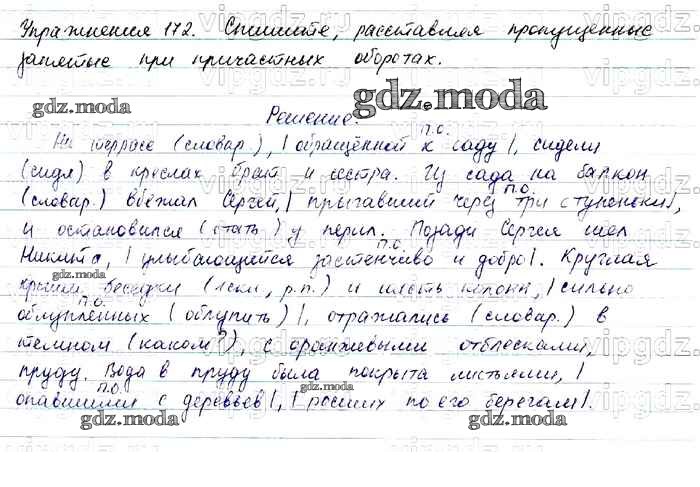 Упражнения 172. Спишите, расставляя пропущенные
запятые при причастных оборотах.
gdz.moda
gdz.moda
Решение.
п.о.
На террасе (словар.), | обращённой к саду |, сидели
(сидя) в креслах брат и сестра. Из сада на балкон
п.о.
(словар.) вбежал Сергей, | прыгавший через три ступеньки |,
и остановился (стать) у перил. Позади Сергея шел
п.о.
Никита, | улыбающийся застенчиво и добро |. Круглая
gdz.moda
крыша беседки (1скл., р.п.) и шесть колонн, | сильно
п.о.
облупленных (облупить) |, отражались (словар.) в
темном (каком?), с оранжевыми отблесками,
пруду. Вода в пруду была покрыта листьями, |
п.о.
gdz.moda
опавшими с деревьев |, | росших по его берегам |.
gdz.moda
gdz.moda